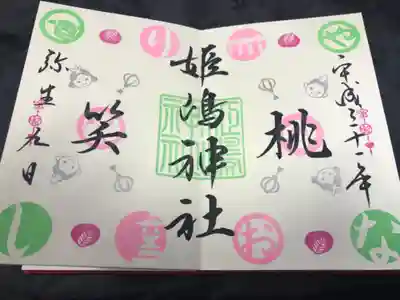 平成三十一年
桃
姫嶋神社
姫嶋神社
笑
弥生九日
や
の
な
お
し